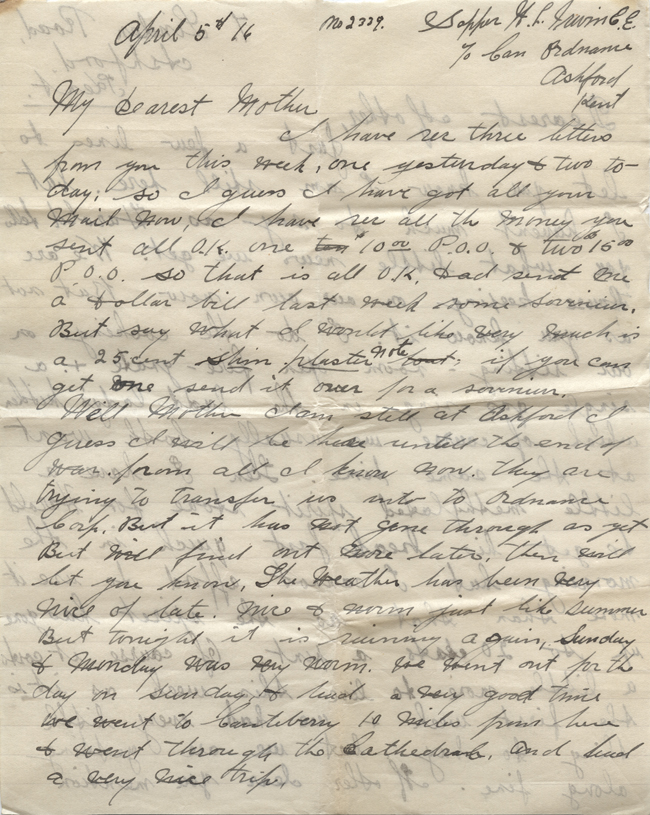 April 5th 16 No 2339. Sapper H. L. Irwin C.E
℅ Can Ordnance
Ashford
Kent
My Dearest Mother
I have rec three letters
from you this week, one yesterday & two to-
day; so I guess I have got all your
Mail Now, I have rec all the Money you
sent all O.K. one 10 00 P.O.O. & two 15 00
P.O.O. so that is all O.K. Dad sent me
a Dollar bill last week some sovinier.
But say what I would like very much is
a 25 cent Shin plaster Note if you can
get one send it over for a sovinier.
Well Mother I am still at Ashford I
guess I will be here untill the end of
war. from all I know now. They are
trying to transfer us into to Ordnance
Corp. But it has not gone through as yet
But will find out more later, then will
let you know, The Weather has been very
Nice of late. Nice & warm just like summer
But tonight it is raining again, Sunday
& Monday was very warm. We went out for the
day on Sunday & had a very good time
We went to Canteberry 10 miles from here
& went through the Cathedral, and had
a very nice trip.